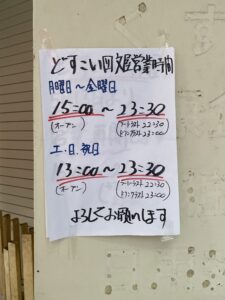 どすこい回文屋営業時間
月曜日～金曜日
15:00～23:30
(オープン)
(フードラスト22:30
ドリンクラスト23:00)
土、日、祝日
13:00～23:30
(オープン)
(フードラスト22:30
ドリンクラスト23:00)
よろしくお願いします